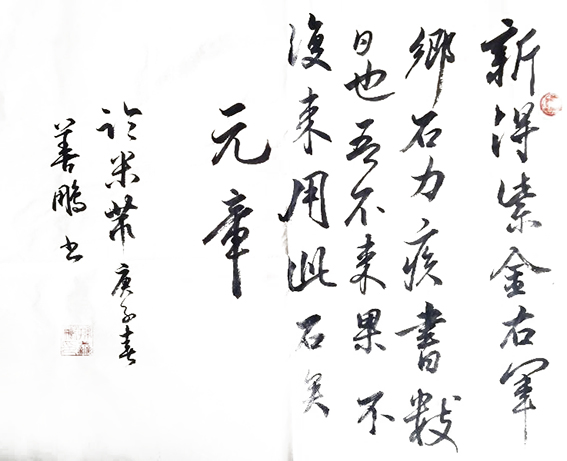 新得紫金右軍
鄉石力疾書數
日也吾不来果不
復来用此石矣
元章
临米芾 庚子春
善鵬书